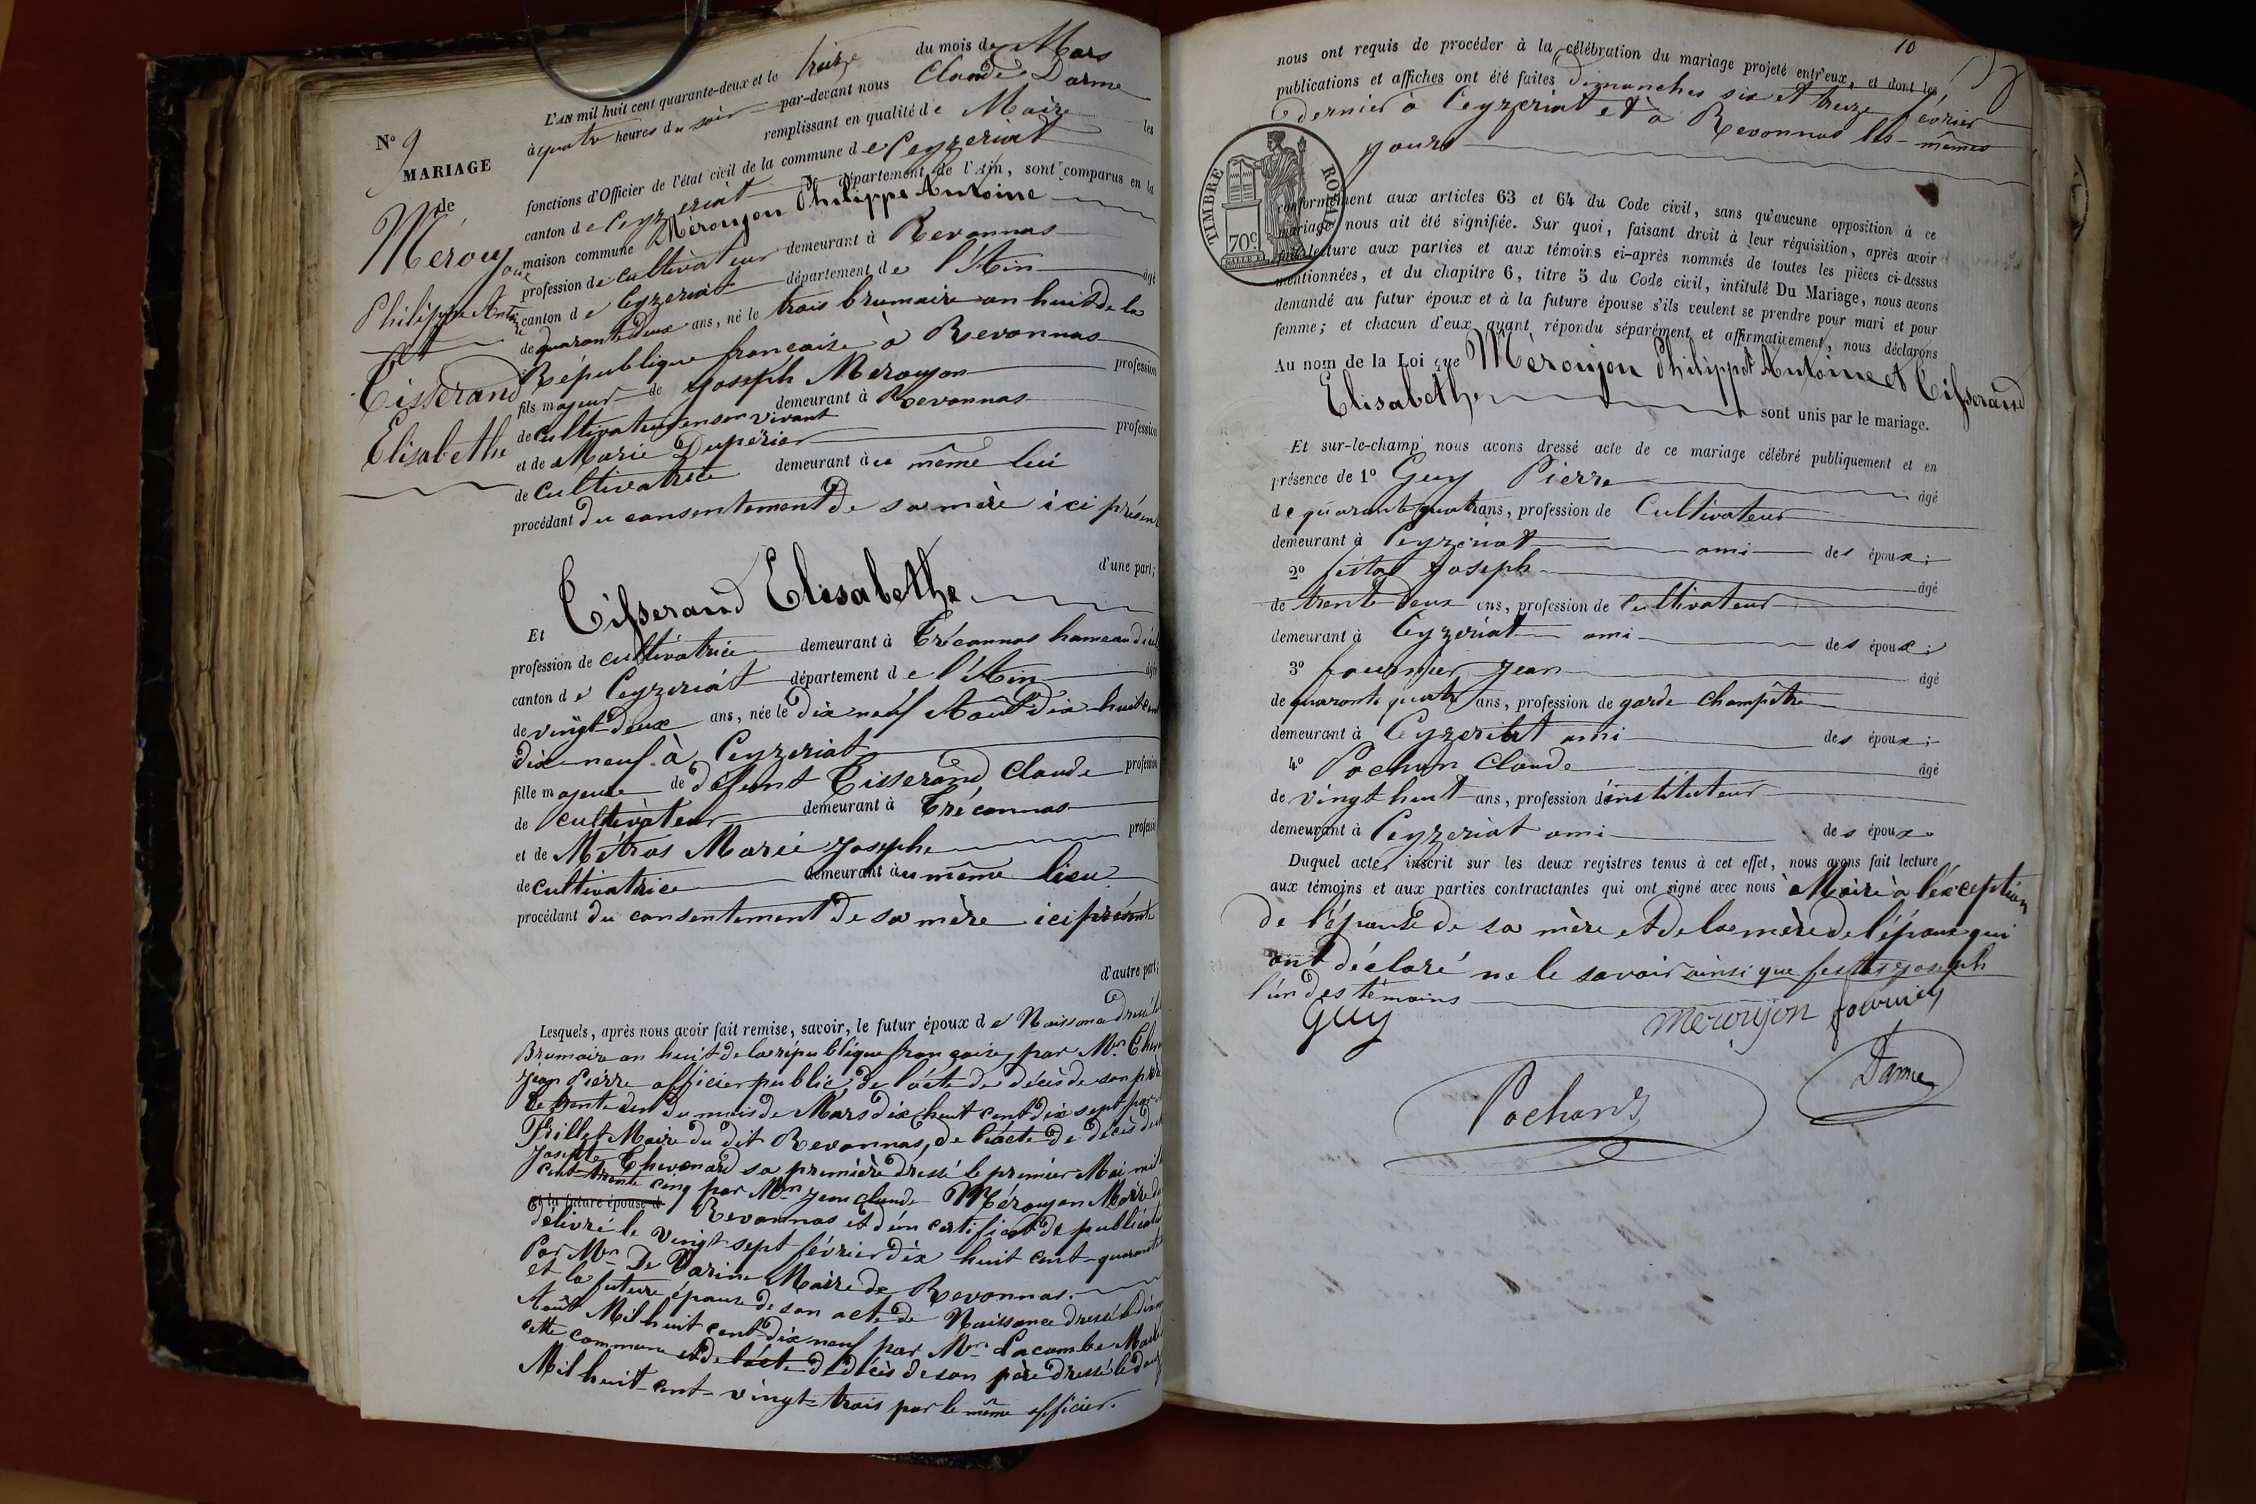 L'AN mil huit cent quarante-deux et le treize du mois de Mars
à quatre heures du soir par-devant nous Claude Darme
remplissant en qualité de Maire les
fonctions d'Officier de l'état civil de la commune de Ceyzeriat
canton de Ceyzeriat département de l'Ain, sont comparus en la
maison commune Méroujon Philippe Antoine
profession de cultivateur demeurant à Revonnas
canton de Ceyzeriat département de l'Ain âgé
de quarante deux ans, né le trois brumaire an huit de la
République française à Revonnas
fils majeur de Joseph Méroujon profession
de cultivateur en son vivant demeurant à Revonnas
et de Marie Dupérier profession
de cultivatrice demeurant à ce même lui
procédant du consentement de sa mère ici présent
d'une part;
N° 9
MARIAGE
de
Méroujon
Philippe Antoine
et
Tisserand
Elisabethe
Et Tisserand Elisabethe
profession de cultivatrice demeurant à Tréconnas hameau
canton de Ceyzeriat département de l'Ain âgée
de vingt deux ans, née le dix neuf Août dix huit cent
dix neuf à Ceyzeriat
fille majeure de défunt Tisserand Claude profession
de cultivateur demeurant à Tréconnas
et de Métras Marie Josephe profession
de cultivatrice demeurant au même lieu
procédant du consentement de sa mère ici présente
d'autre part;
Lesquels, après nous avoir fait remise, savoir, le futur époux de Naissance dressé le
Brumaire an huit de la république française, par Mr
Jean Pierre officier public, de l'acte de décès de son père
du mois de Mars dix huit cent dix sept par
Maire du dit Revonnas, de l'acte de décès de
Josephte Thevenard sa première dressé le premier Mai mil
cent trente cinq par Mr Jean Claude Méroujon Maire de
et la future épouse d Revonnas et d'un certificat de publication
délivré le vingt sept février dix huit cent quarante
Par Mr De Varine Maire de Revonnas.
et la future épouse de son acte de Naissance dressé le
Août Mil huit cent dix neuf par Mr Lacombe Maire
cette commune et de l'acte de décès de son père dressé le
Mil huit cent vingt trois par le même officier.
10
nous ont requis de procéder à la célébration du mariage projeté entr'eux, et dont les
publications et affiches ont été faites dimanches six et treize février
dernier à Ceyzeriat et à Revonnas les mêmes
jours
TIMBRE ROYAL
70c
conformément aux articles 63 et 64 du Code civil, sans qu'aucune opposition à ce
mariage nous ait été signifiée. Sur quoi, faisant droit à leur réquisition, après avoir
fait lecture aux parties et aux témoins ci-après nommés de toutes les pièces ci-dessus
mentionnées, et du chapitre 6, titre 5 du Code civil, intitulé Du Mariage, nous avons
demandé au futur époux et à la future épouse s'ils veulent se prendre pour mari et pour
femme; et chacun d'eux ayant répondu séparément et affirmativement, nous déclarons
Au nom de la Loi que Méroujon Philippe Antoine et Tisserand
Elisabethe sont unis par le mariage.
Et sur-le-champ nous avons dressé acte de ce mariage célébré publiquement et en
présence de 1° Guy Pierre âgé
de quarante quatre ans, profession de Cultivateur
demeurant à Ceyzeriat ami des époux;
2° Joseph âgé
de trente deux ans, profession de cultivateur
demeurant à Ceyzeriat ami des époux;
3° fournier Jean âgé
de quarante quatre ans, profession de garde champêtre
demeurant à Ceyzeriat ami des époux;
4° Pochon Claude âgé
de vingt huit ans, profession d'instituteur
demeurant à Ceyzeriat ami des époux
Duquel acte, inscrit sur les deux registres tenus à cet effet, nous avons fait lecture
aux témoins et aux parties contractantes qui ont signé avec nous Maire à l'exception
de l'épouse de sa mère et de la mère de l'époux qui
ont déclaré ne le savoir ainsi que Joseph
l'un des témoins
Guy Meroujon fournier
Pochon Darme